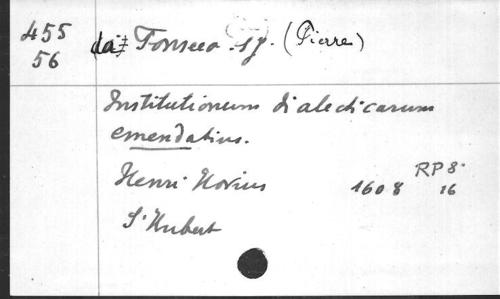 455
56
da Fonseca s.j. (Pierre)
Institutionum dialecticarum
emendatius.
Henri Hovius 1608 RP 8.
16
St Hubert